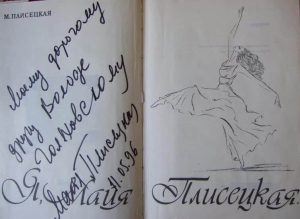 М. ПЛИСЕЦКАЯ
моему дорогому
другу Володе
Голковскому
Я, Майя
Майя Плисецкая
11.05.96
Плисецкая